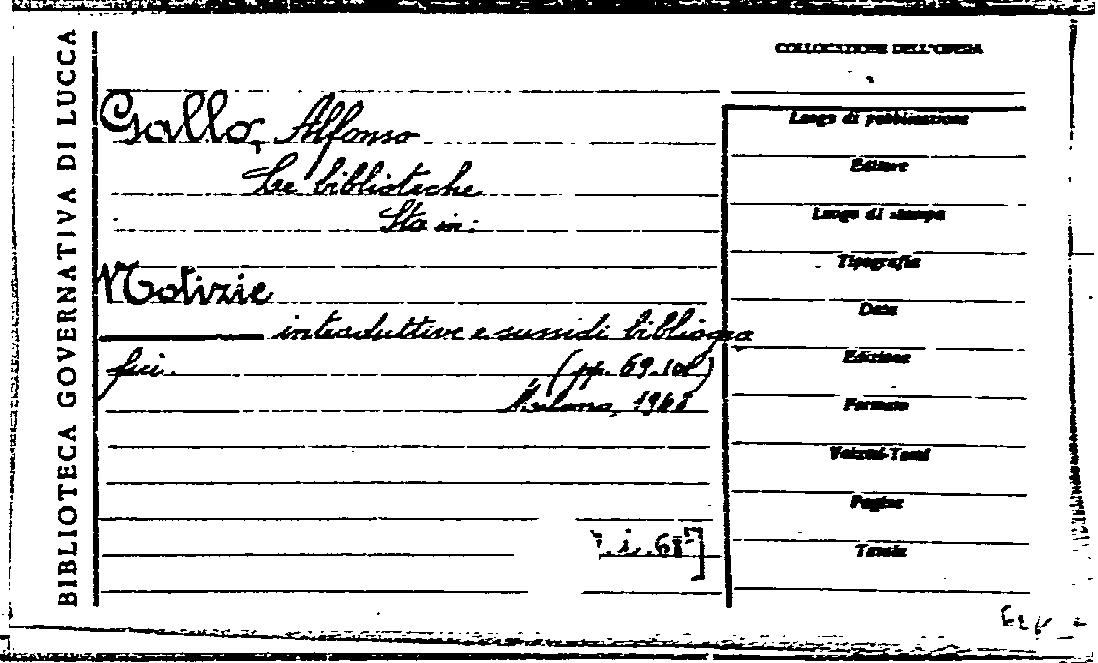 BIBLIOTECA GOVERNATIVA DI LUCCA
COLLOCAZIONE DELL'OPERA
Gallo, Alfonso
Le biblioteche
Sta in:
Notizie
introduttive e sussidi bibliogra
fici. (pp. 69-
Milano, 1948
Luogo di pubblicazione
Editore
Luogo di stampa
Tipografia
Data
Edizione
Formato
Volumi-Tomi
Pagine
Tavole